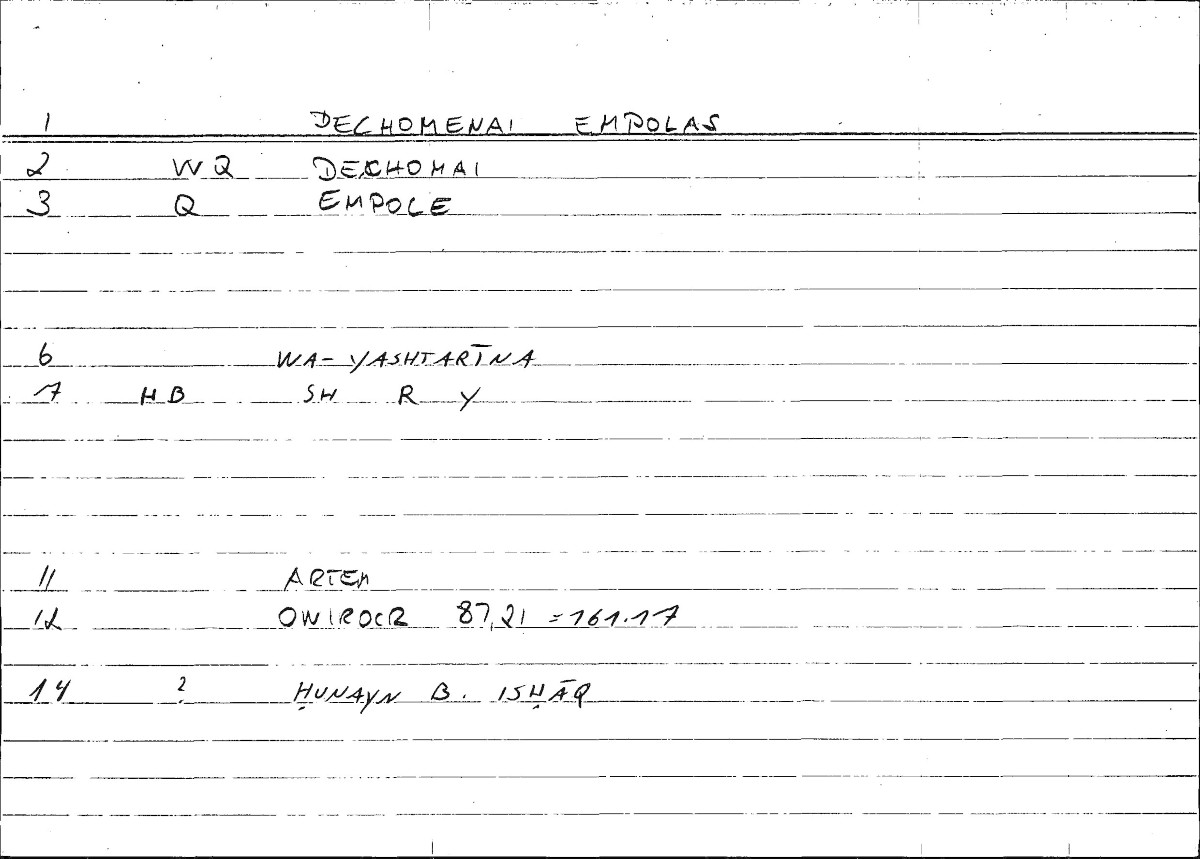 1 DECHOMENAI EMPOLAS
2 WQ DECHOMAI
3 Q EMPOLE
6 WA-YASHTARĪNA
7 HB SH R Y
11 ARTEM
12 ONIROCR 87,21 = 161.17
14 ? ḤUNAYN B. ISḤĀQ